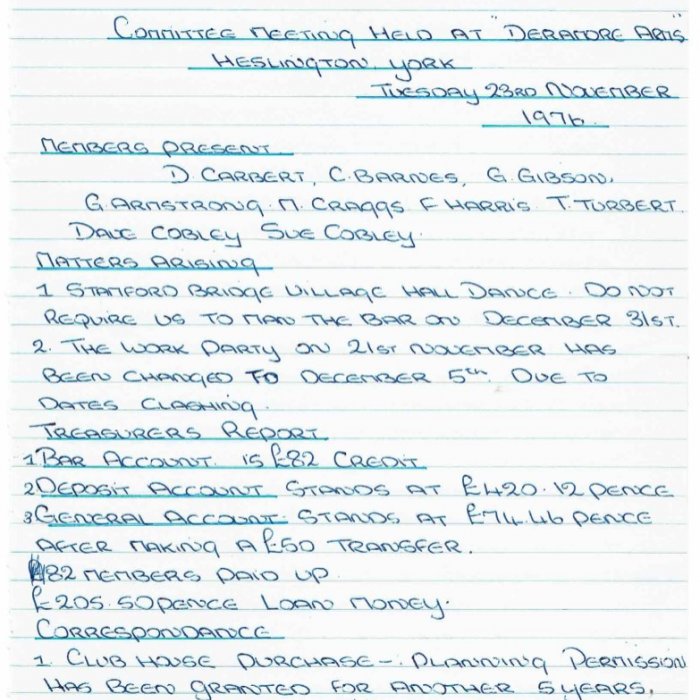 COMMITTEE MEETING HELD AT "DERAMORE ARMS"
HESLINGTON YORK
TUESDAY 23RD NOVEMBER
1976.
MEMBERS PRESENT.
D. CARBERT, C. BARNES, G. GIBSON,
G. ARMSTRONG. M. CRAGGS F HARRIS T. TURBERT.
DAVE COBLEY SUE COBLEY.
MATTERS ARISING
1 STAMFORD BRIDGE VILLAGE HALL DANCE. DO NOT
REQUIRE US TO MAN THE BAR ON DECEMBER 31ST.
2. THE WORK PARTY ON 21ST NOVEMBER HAS
BEEN CHANGED TO DECEMBER 5TH. DUE TO
DATES CLASHING.
TREASURERS REPORT.
1 BAR ACCOUNT. IS £82 CREDIT
2 DEPOSIT ACCOUNT STANDS AT £420.12 PENCE
3 GENERAL ACCOUNT. STANDS AT £74.46 PENCE
AFTER MAKING A £50 TRANSFER.
82 MEMBERS PAID UP.
£205.50 PENCE LOAN MONEY.
CORRESPONDANCE
1. CLUB HOUSE PURCHASE -: PLANNING PERMISSION
HAS BEEN GRANTED FOR ANOTHER 5 YEARS.